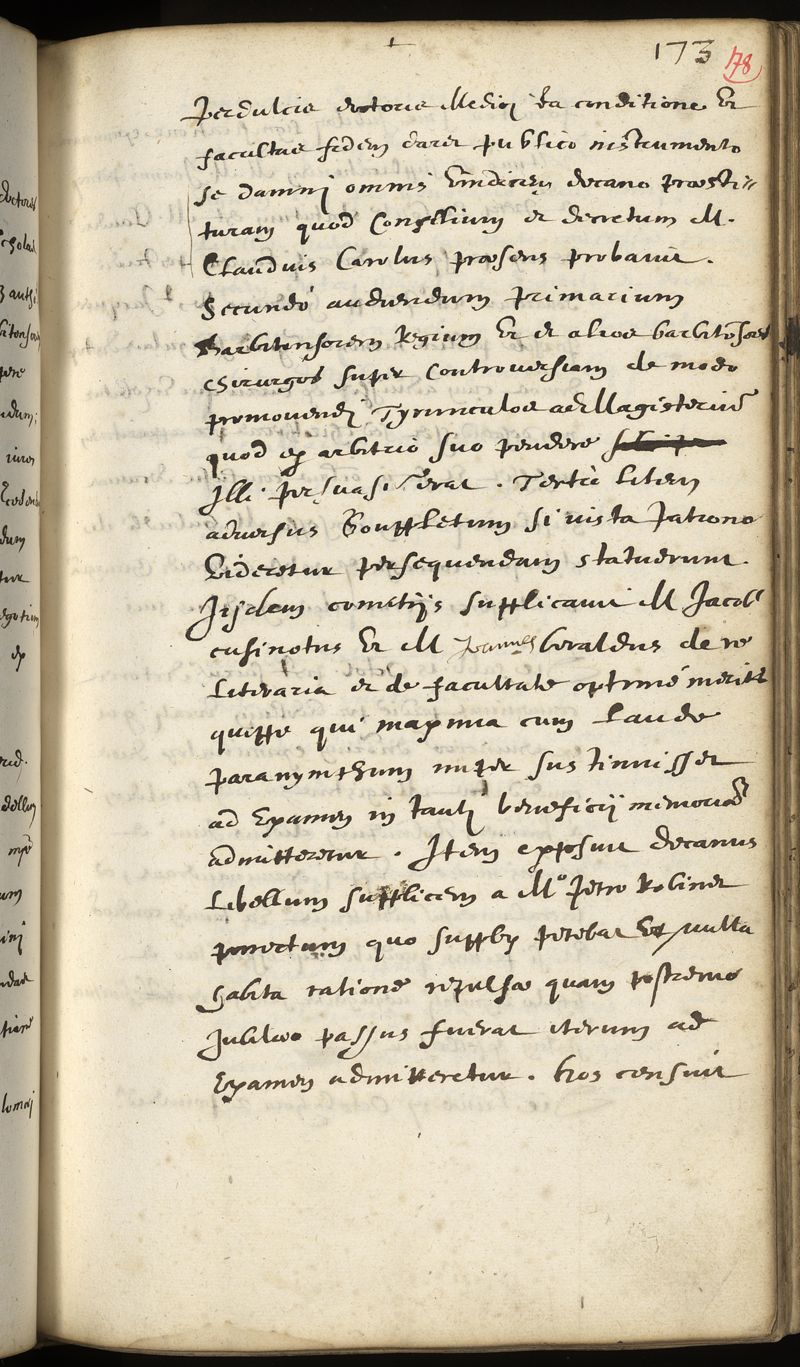 173 178
Perdulcis doctoris Medici ea conditione Vt
facultas fidem daret publico instrumento
se damni omnis Vindicem decano præsti〃
turam quod Consilium et decretum M.
Claudius Carolus præsens probavit.
Secundó audiendum primarium
Barbitonsorem Regium Vt et alios barbitõsores
chirurgos super controversiam de modo
promovendi Tyrunculos ad Magisteriũ
quod ex arbitrio suo pendere
Illi persuasũ erat. Tertiò litem
adversus Bouffletum si iusta Patrono
Videretur persequendam statuerunt.
Iisdem comitijs supplicavit M Jacob9
cusinotus Et M Joannes beraldus de re
literaria et de facultate optimé meriti
quippe qui maxima cum laude
paranymphum nuper sustinuisset
ad Examen in tanti beneficij memoriã
admitteretur. Item exposuit decanus
Libellum supplicem a M.º Petro Robinet
porrectum quo supplex petebat Vt nulla
habita ratione repulsæ quam postremo
Jubilæo passus fuerat iterum ad
Examen admitteretur. hos censuit